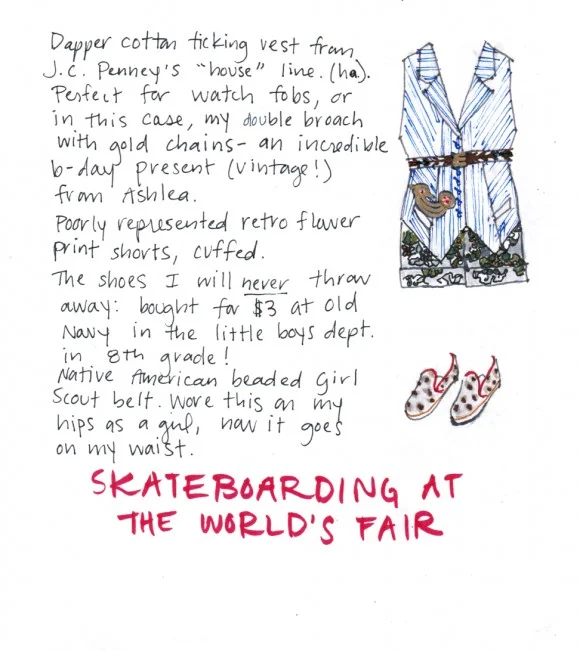 Dapper cotton ticking vest from
J.C. Penney's "house" line. (ha).
Perfect for watch fobs, or
in this case, my double broach
with gold chains- an incredible
b-day present (vintage!)
from Ashlea.
Poorly represented retro flower
print shorts, cuffed.
The shoes I will never throw
away: bought for $3 at Old
Navy in the little boys dept.
in 8th grade!
Native American beaded Girl
Scout belt. Wore this on my
hips as a girl, now it goes
on my waist.
SKATEBOARDING AT
THE WORLD'S FAIR